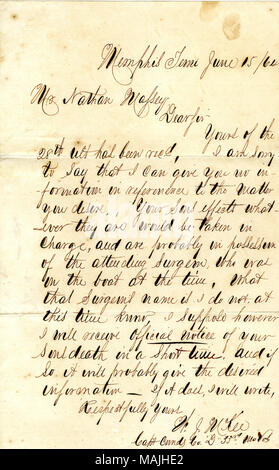 Memphis Tenn June 15/64
Mr Nathan Massey
Dear sir
Yours of the
28th ult has been recd, I am sorry
to say that I can give you no in-
formation in referrence to the matter
you desire. Your Sons effects what
ever they are would be taken in
charge, and are probably in possession
of the attending surgeon, who was
on the boat at the time, What
that Surgeons name is I do not, at
this time know, I suppose however
I will receive official notice of your
Sons death in a short time, and if
so it will probably give the desired
information — If it does, I will write,
Respectfully Yours
W. J. McKee
Capt Comdg Co. D. 33rd Mo Vols
alamy
MAJHE2
www.alamy.com